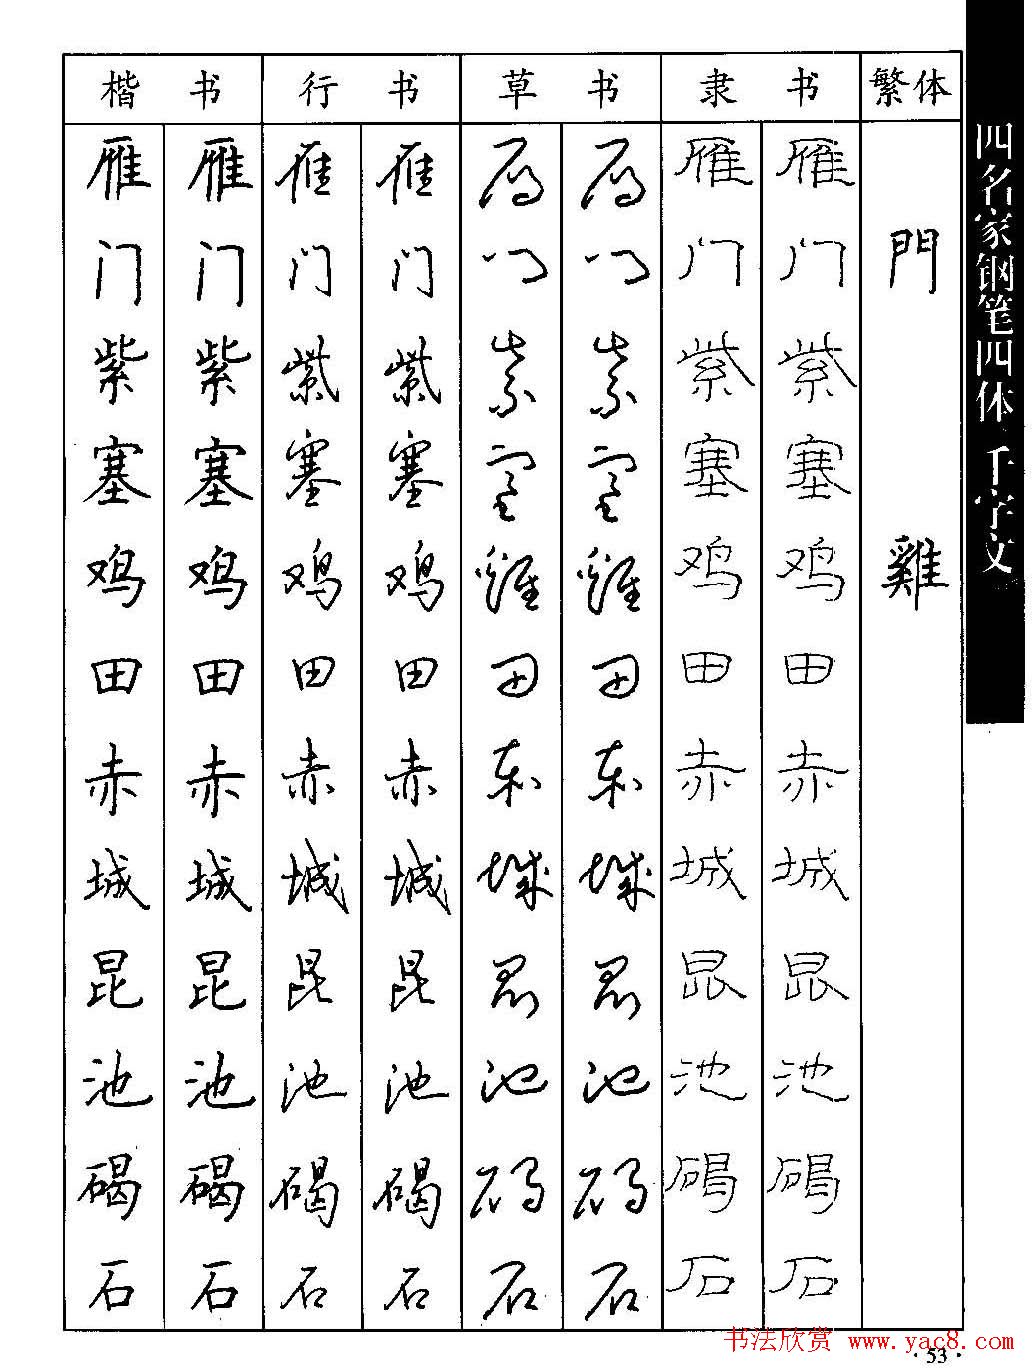 楷书 行书 草书 隶书 繁体
雁 雁 雁 雁 雁 雁 雁 雁
门 门 门 门 门 门 门 门 門
紫 紫 紫 紫 紫 紫 紫 紫
塞 塞 塞 塞 塞 塞 塞 塞
鸡 鸡 鸡 鸡 雞 雞 鸡 鸡 雞
田 田 田 田 田 田 田 田
赤 赤 赤 赤 赤 赤 赤 赤
城 城 城 城 城 城 城 城
昆 昆 昆 昆 昆 昆 昆 昆
池 池 池 池 池 池 池 池
碣 碣 碣 碣 碣 碣 碣 碣
石 石 石 石 石 石 石 石
四名家钢笔四体千字文
书法欣赏 www.yac8.com
·53·